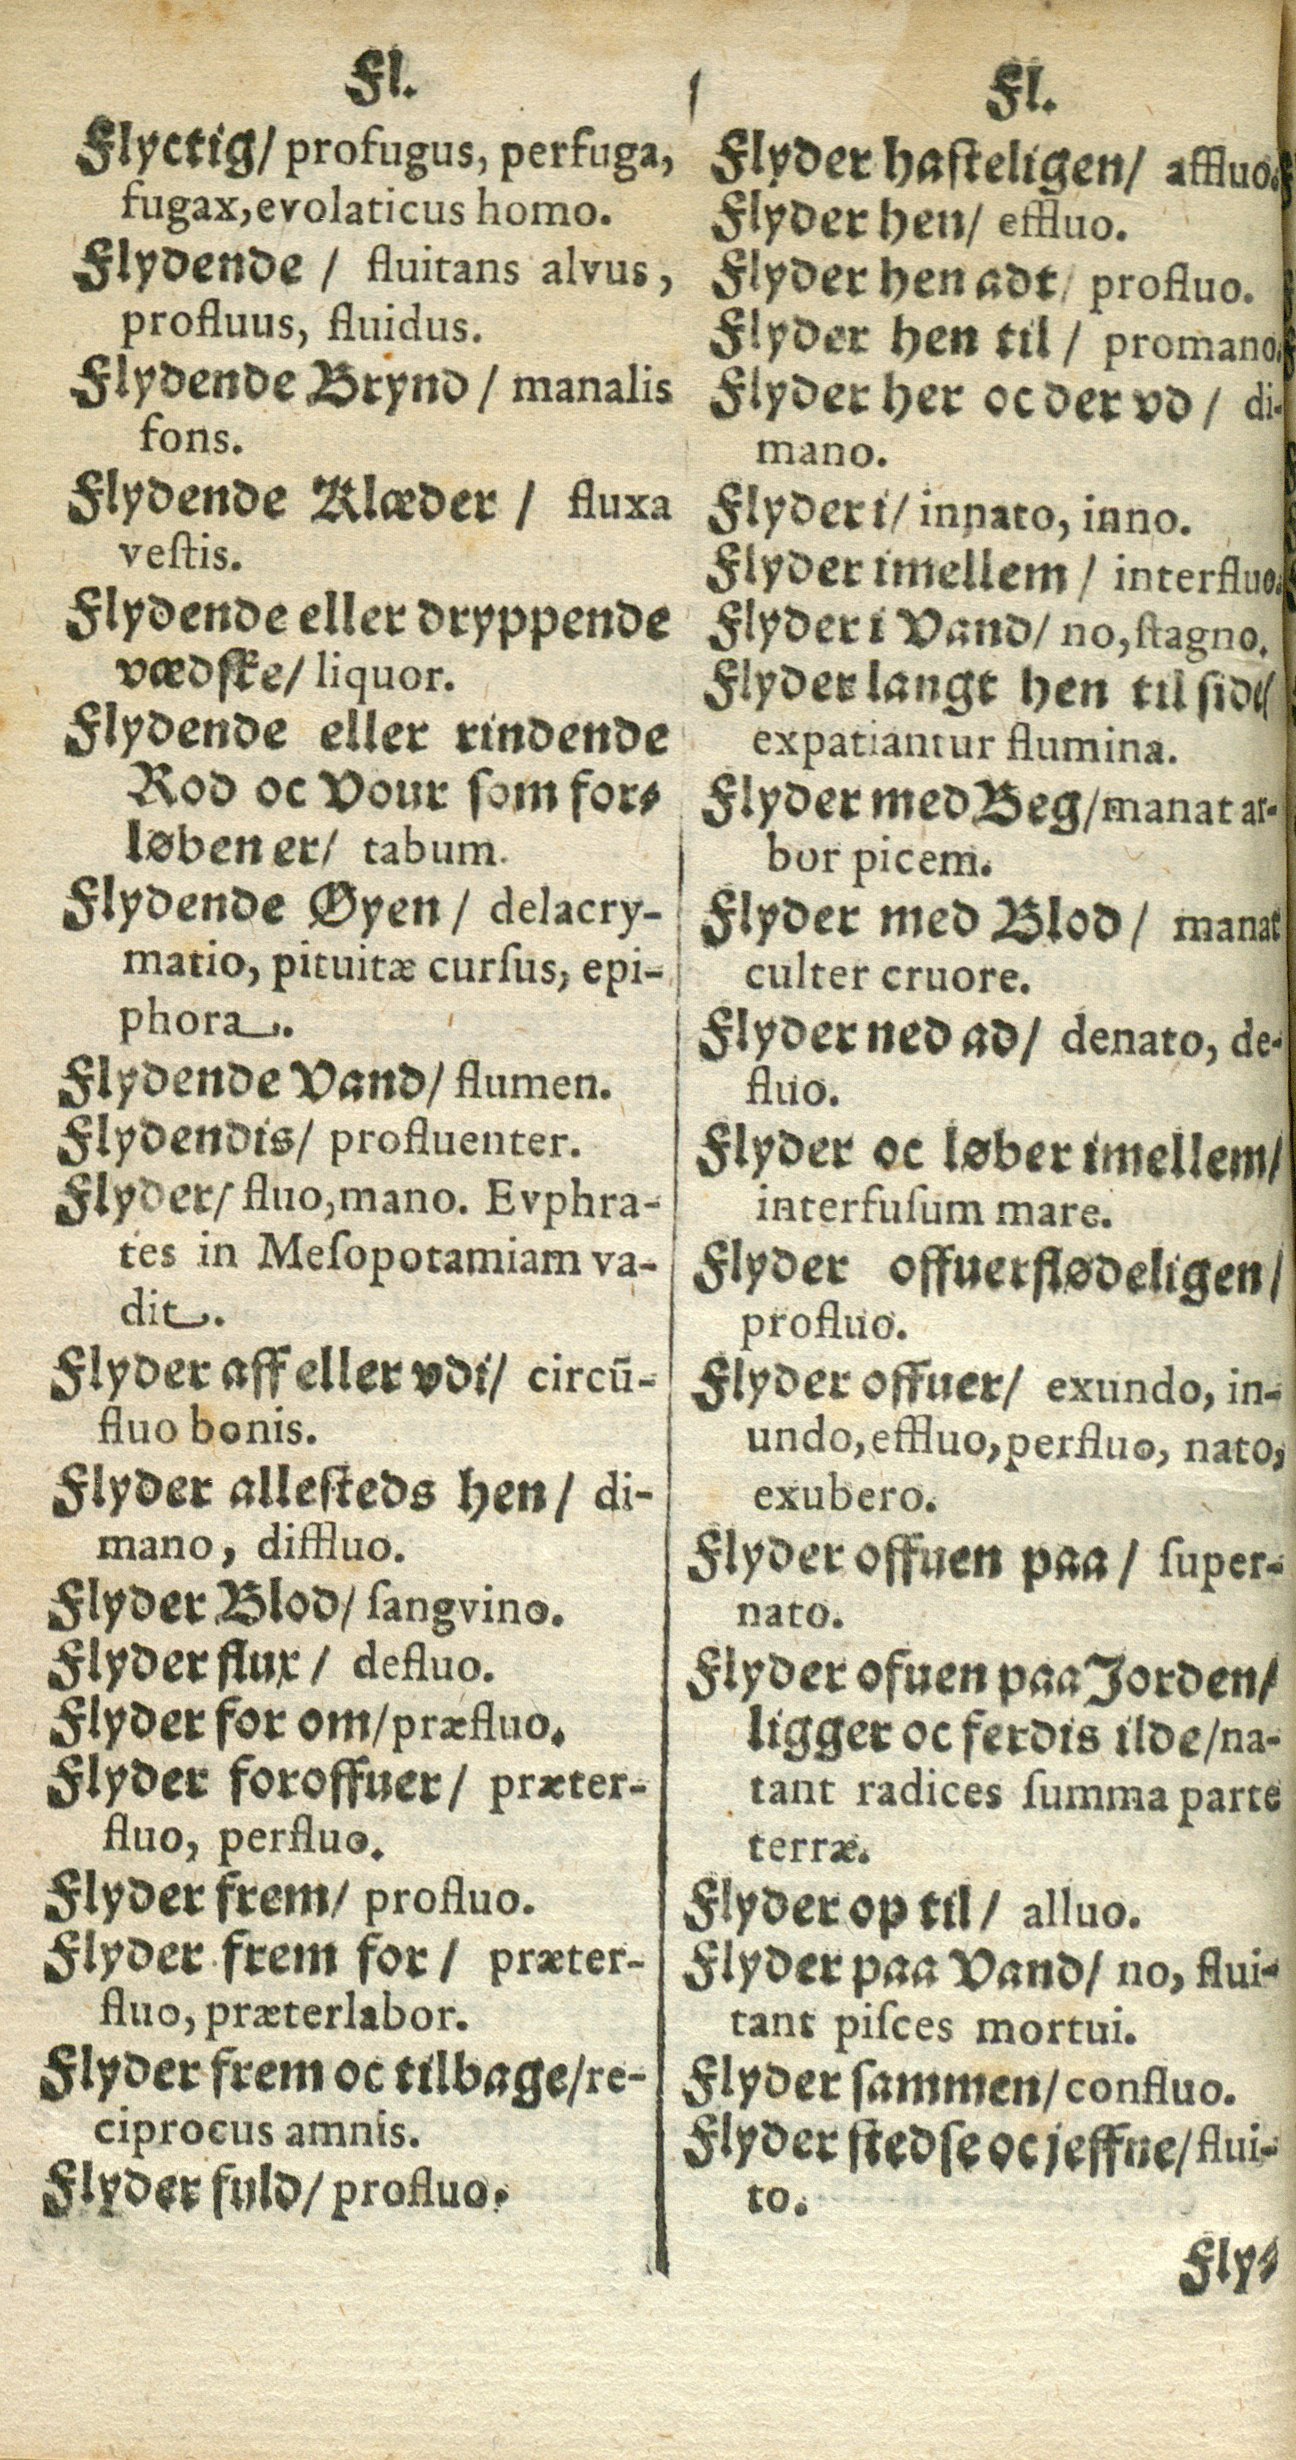 Fl.
Flyctig/ profugus, perfuga,
fugax, evolaticus homo.
Flydende / fluitans alvus,
profluus, fluidus.
Flydende Brynd / manalis
fons.
Flydende Klæder / fluxa
veſtis.
Flydende eller dryppende
vædſke/ liquor.
Flydende eller rindende
Rod oc Vour ſom for⸗
løben er/ tabum.
Flydende Øyen / delacry-
matio, pituitæ curſus, epi-
phora.
Flydende Vand/ flumen.
Flydendis/ profluenter.
Flyder/ fluo, mano. Evphra-
tes in Meſopotamiam va-
dit.
Flyder aff eller vdi/ circū-
fluo bonis.
Flyder alleſteds hen/ di-
mano, diffluo.
Flyder Blod/ ſangvino.
Flyder flux / defluo.
Flyder for om/ præfluo.
Flyder foroffuer/ præter-
fluo, perfluo.
Flyder frem/ profluo.
Flyder frem for / præter-
fluo, præterlabor.
Flyder frem oc tilbage/ re-
ciprocus amnis.
Flyder fuld/ profluo.
Fl.
Flyder haſteligen/ affluo.
Flyder hen/ effluo.
Flyder hen adt/ profluo.
Flyder hen til / promano.
Flyder her oc der vd / di-
mano.
Flyder i/ innato, inno.
Flyder imellem / interfluo.
Flyder i Vand/ no, ſtagno.
Flyder langt hen til ſide/
expatiantur flumina.
Flyder med Beg/ manat ar-
bor picem.
Flyder med Blod/ manat
culter cruore.
Flyder ned ad/ denato, de-
fluo.
Flyder oc løber imellem/
interfuſum mare.
Flyder offuerflødeligen/
profluo.
Flyder offuer/ exundo, in-
undo, effluo, perfluo, nato,
exubero.
Flyder offuen paa / ſuper-
nato.
Flyder ofuen paa Jorden/
ligger oc ferdis ilde/ na-
tant radices ſumma parte
terræ.
Flyder op til / alluo.
Flyder paa Vand/ no, flui-
tant piſces mortui.
Flyder ſammen/ confluo.
Flyder ſtedſe oc jeffne/ flui-
to.
Fly⸗